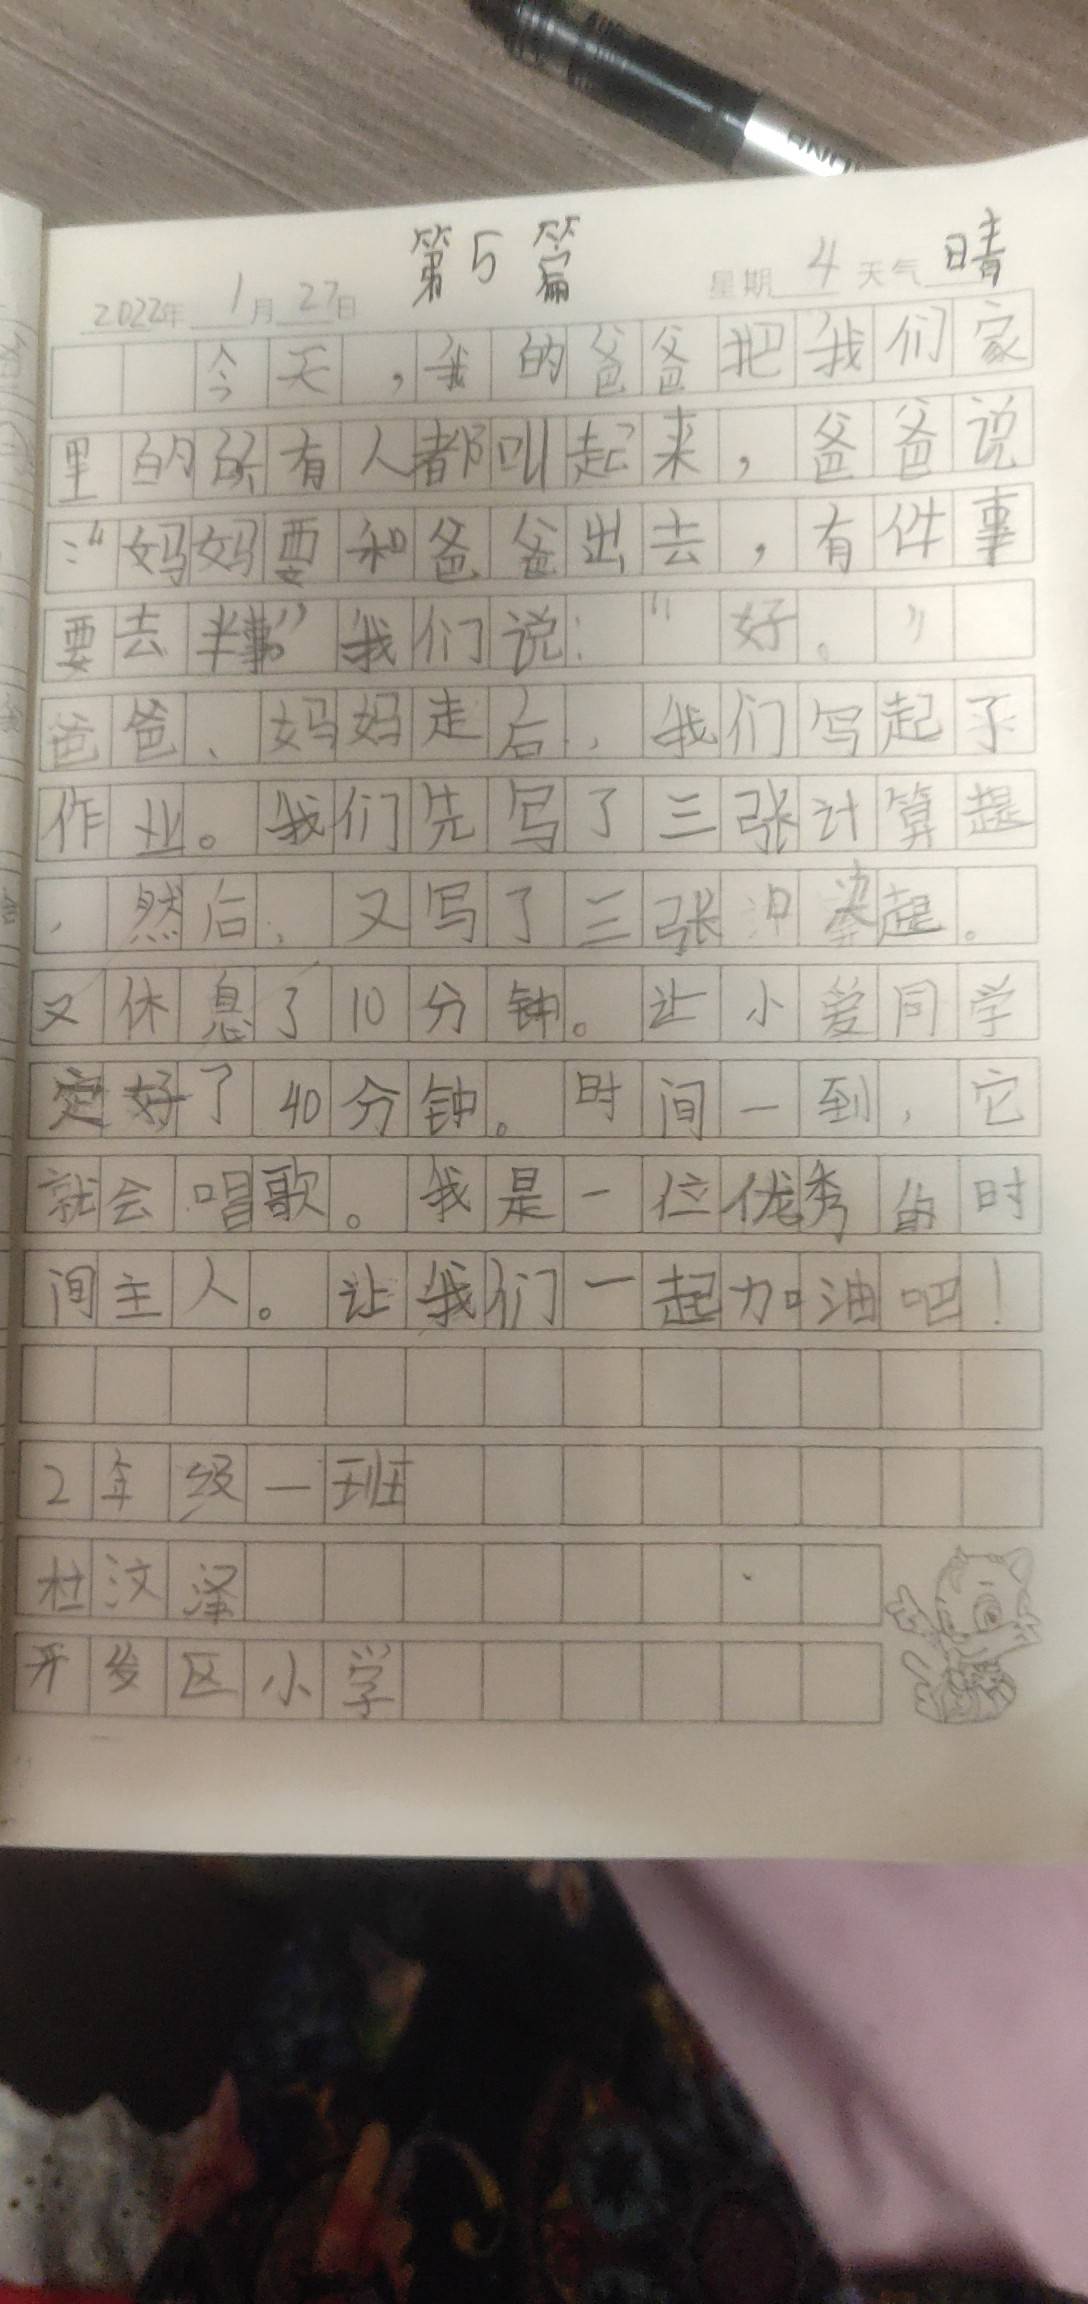 第5篇
2022年 1月 27日 星期 4 天气 晴
今天,我的爸爸把我们家
里的所有人都叫起来,爸爸说
:“妈妈要和爸爸出去,有件事
要去半事”我们说:“好。”
爸爸、妈妈走后,我们写起了
作业。我们先写了三张计算题
,然后,又写了三张冲 题。
又休息了10分钟。让小爱同学
定好了40分钟。时间一到,它
就会唱歌。我是一位优秀的时
间主人。让我们一起加油吧!
2年级一班
杜汶泽
开发区小学